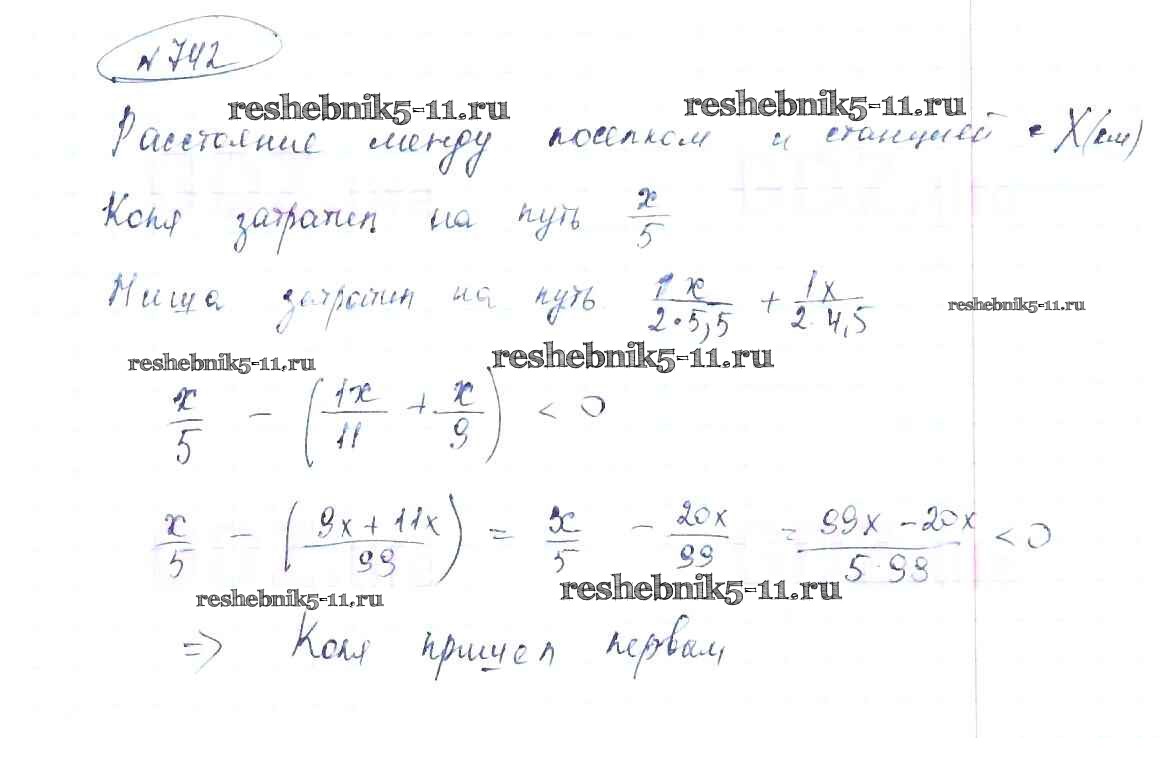 № 742
reshebnik5-11.ru reshebnik5-11.ru
Расстояние между поселком и станцией - X(км)
Коля затратил на путь x/5
Миша затратил на путь 1x/2·5,5 + 1x/2·4,5
reshebnik5-11.ru
reshebnik5-11.ru reshebnik5-11.ru
x/5 - (1x/11 + x/9) < 0
x/5 - (9x + 11x/99) = x/5 - 20x/99 = 99x - 20x/5·99 < 0
reshebnik5-11.ru reshebnik5-11.ru
=> Коля пришел первым